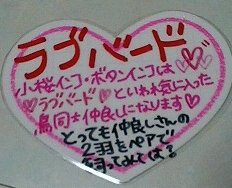 ラブバード
小桜インコ・ボタンインコは
ラブバードといわれ気に入った
鳥同士仲良しになります
とっても仲良しさんの
2羽をペアで
飼ってみては?